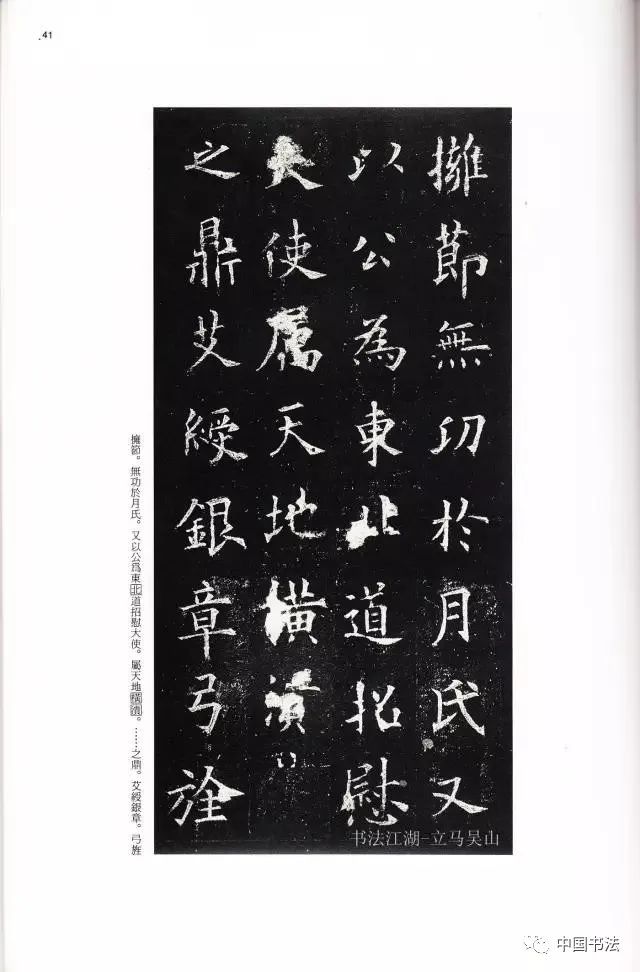 .41
擁節無功於月氏又
以公為東北道招慰
大使屬天地橫潰
之鼎艾綬銀章弓旌
擁節。無功於月氏。又以公爲東北道招慰大使。屬天地橫潰。……之鼎。艾綬銀章。弓旌
书法江湖-立马吴山
中国书法